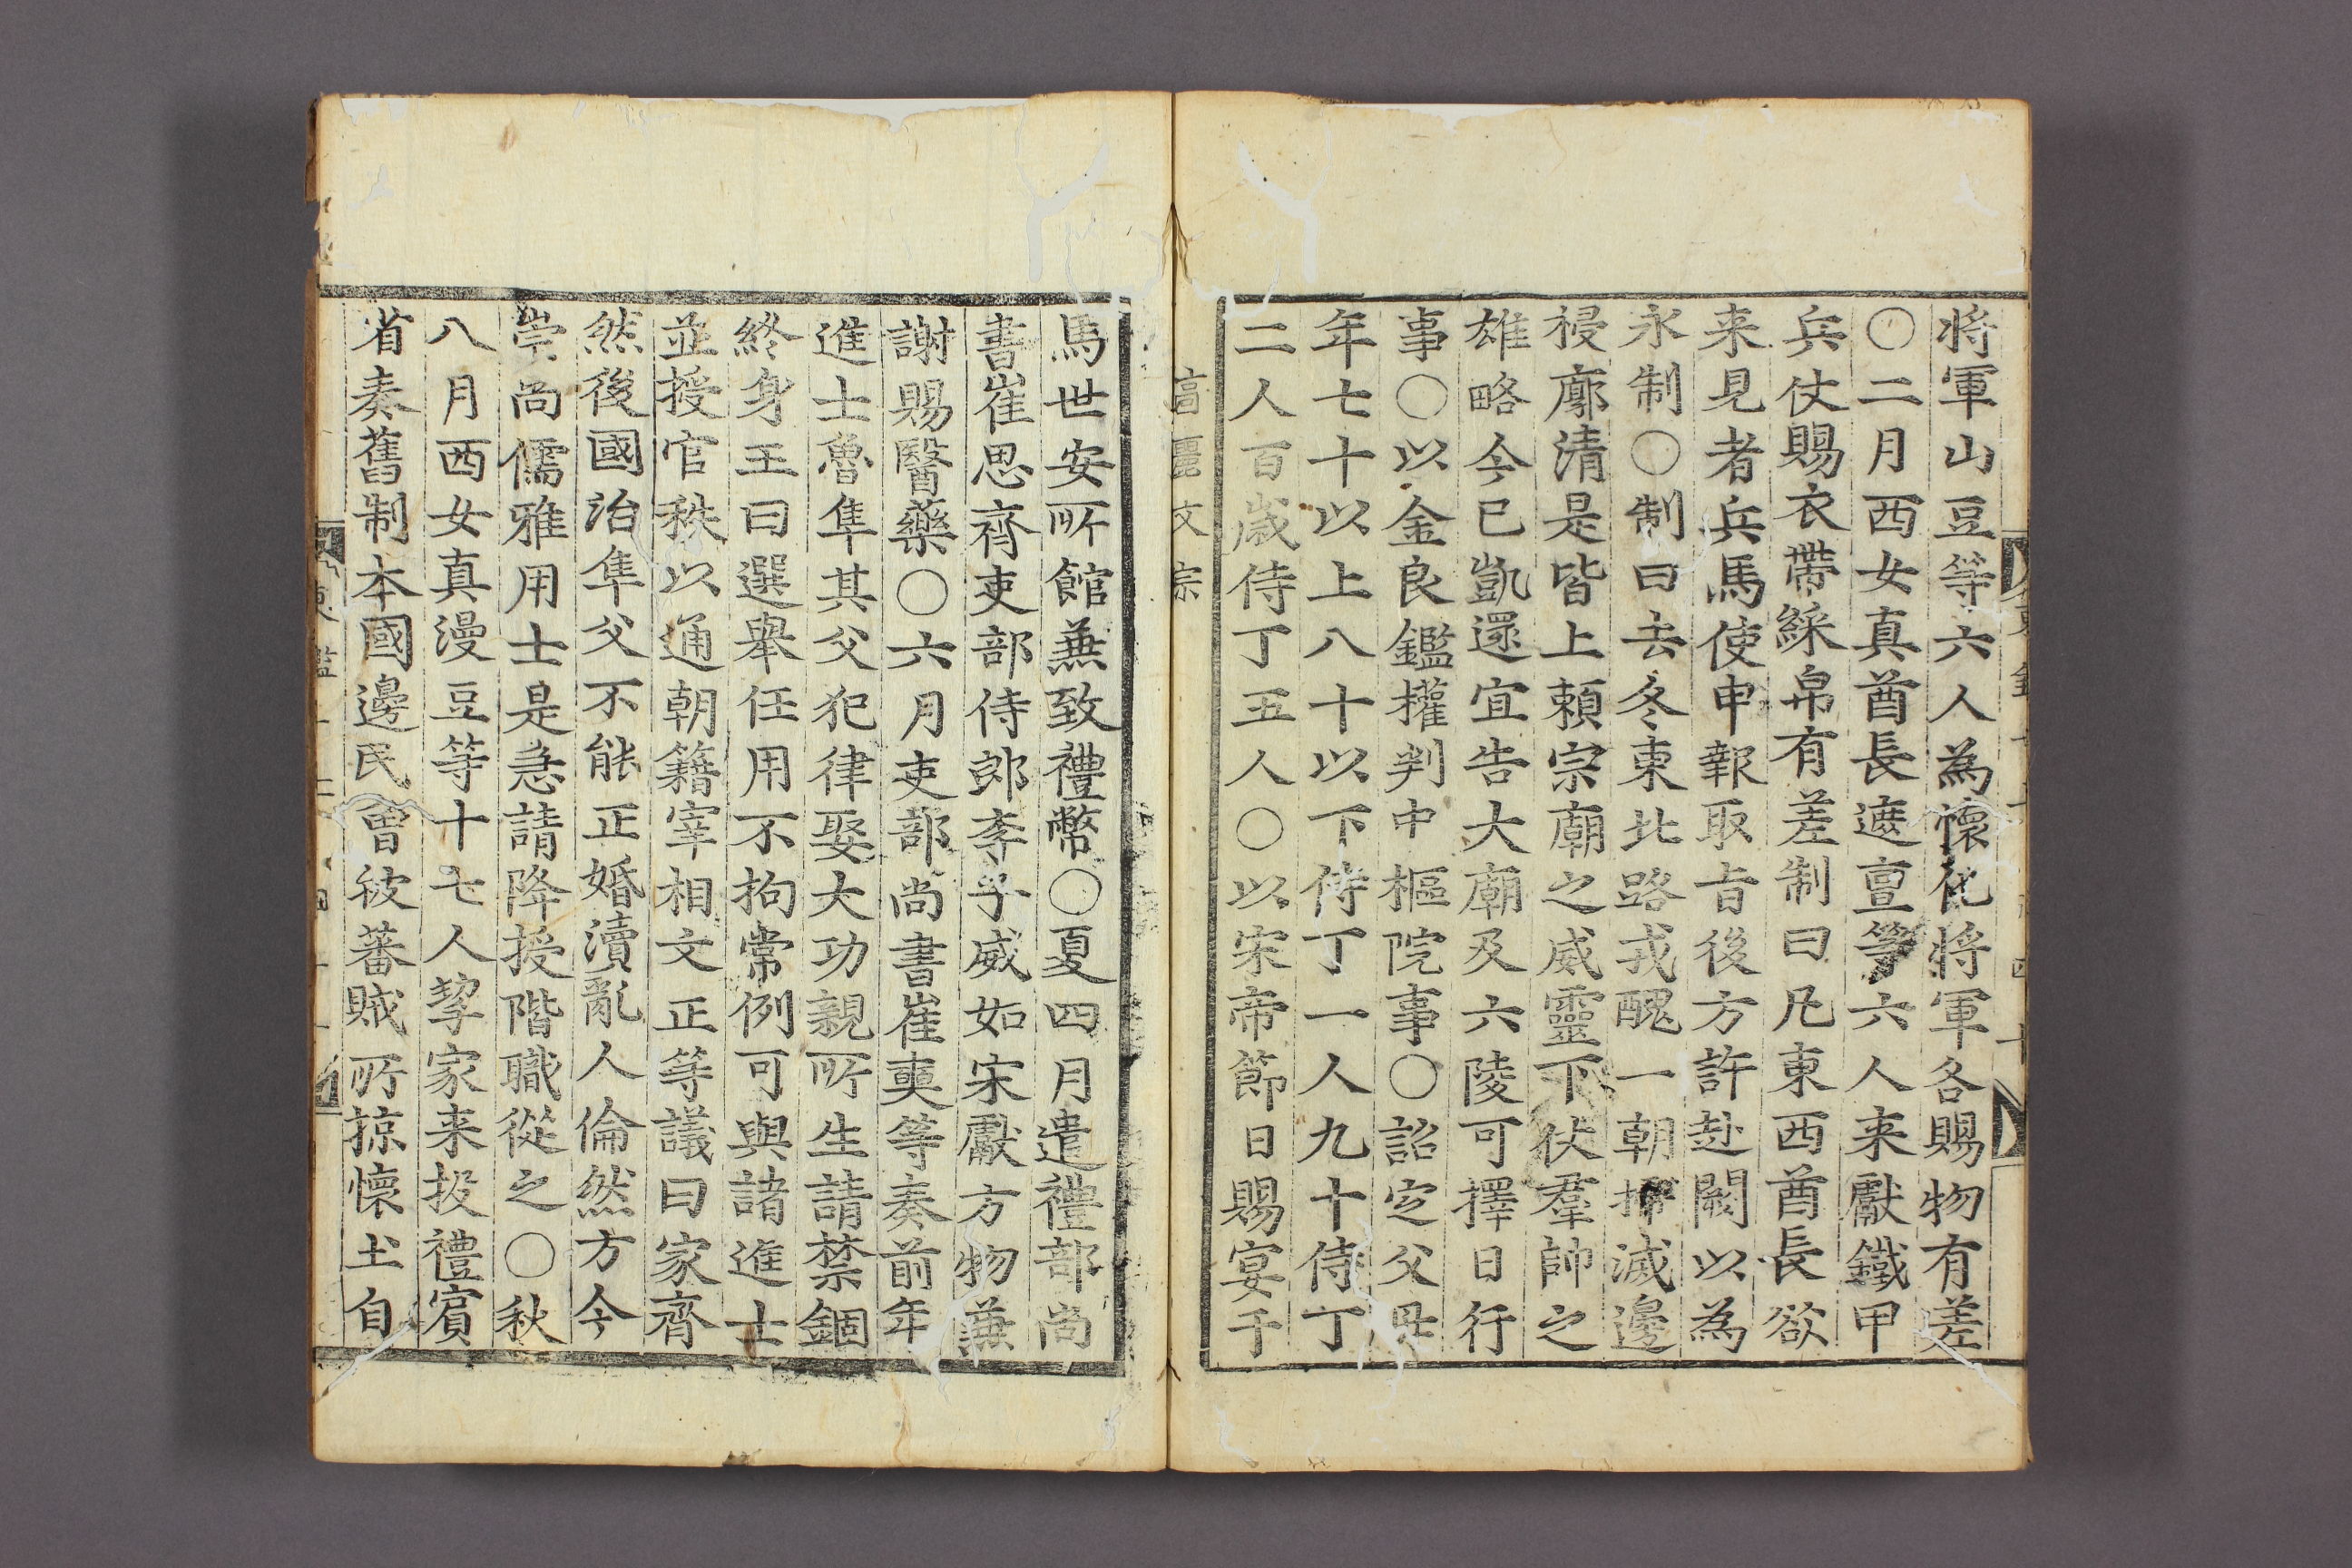 將軍山豆等六人為懷化將軍各賜物有差
○二月西女真酋長遮亶等六人来獻鐵甲
兵仗賜衣帶綵帛有差制曰凡東西酋長欲
来見者兵馬使申報取旨後方許赴闕以為
永制○制曰去冬東北路戎醜一朝掃滅邊
祲廓清是皆上頼宗廟之威靈下伏羣帥之
雄略今已凱還宜告大廟及六陵可擇日行
事○以金良鑑權判中樞院事○詔定父母
年七十以上八十以下侍丁一人九十侍丁
二人百歲侍丁五人○以宋帝節日賜宴于
高麗文宗
馬世安所館兼致禮幣○夏四月遣禮部尚
書崔思齊吏部侍郎李子威如宋獻方物兼
謝賜醫藥○六月吏部尚書崔奭等奏前年
進士魯隼其父犯律娶大功親所生請禁錮
終身王曰選舉任用不拘常例可與諸進士
並授官秩以通朝籍宰相文正等議曰家齊
然後國治隼父不能正婚瀆亂人倫然方今
崇尚儒雅用士是急請降授階職從之○秋
八月西女真漫豆等十七人挈家来投禮賓
省奏舊制本國邊民曾被蕃賊所掠懷土自